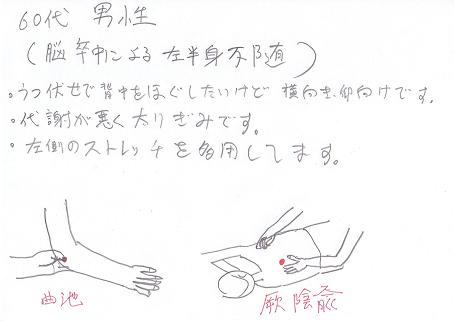 60代 男性
(脳卒中による左半身不随)
・うつ伏せで背中をほぐしたいけど 横向き、仰向けです。
・代謝が悪く太りぎみです。
・左側のストレッチを多用してます。
曲池
厥陰兪